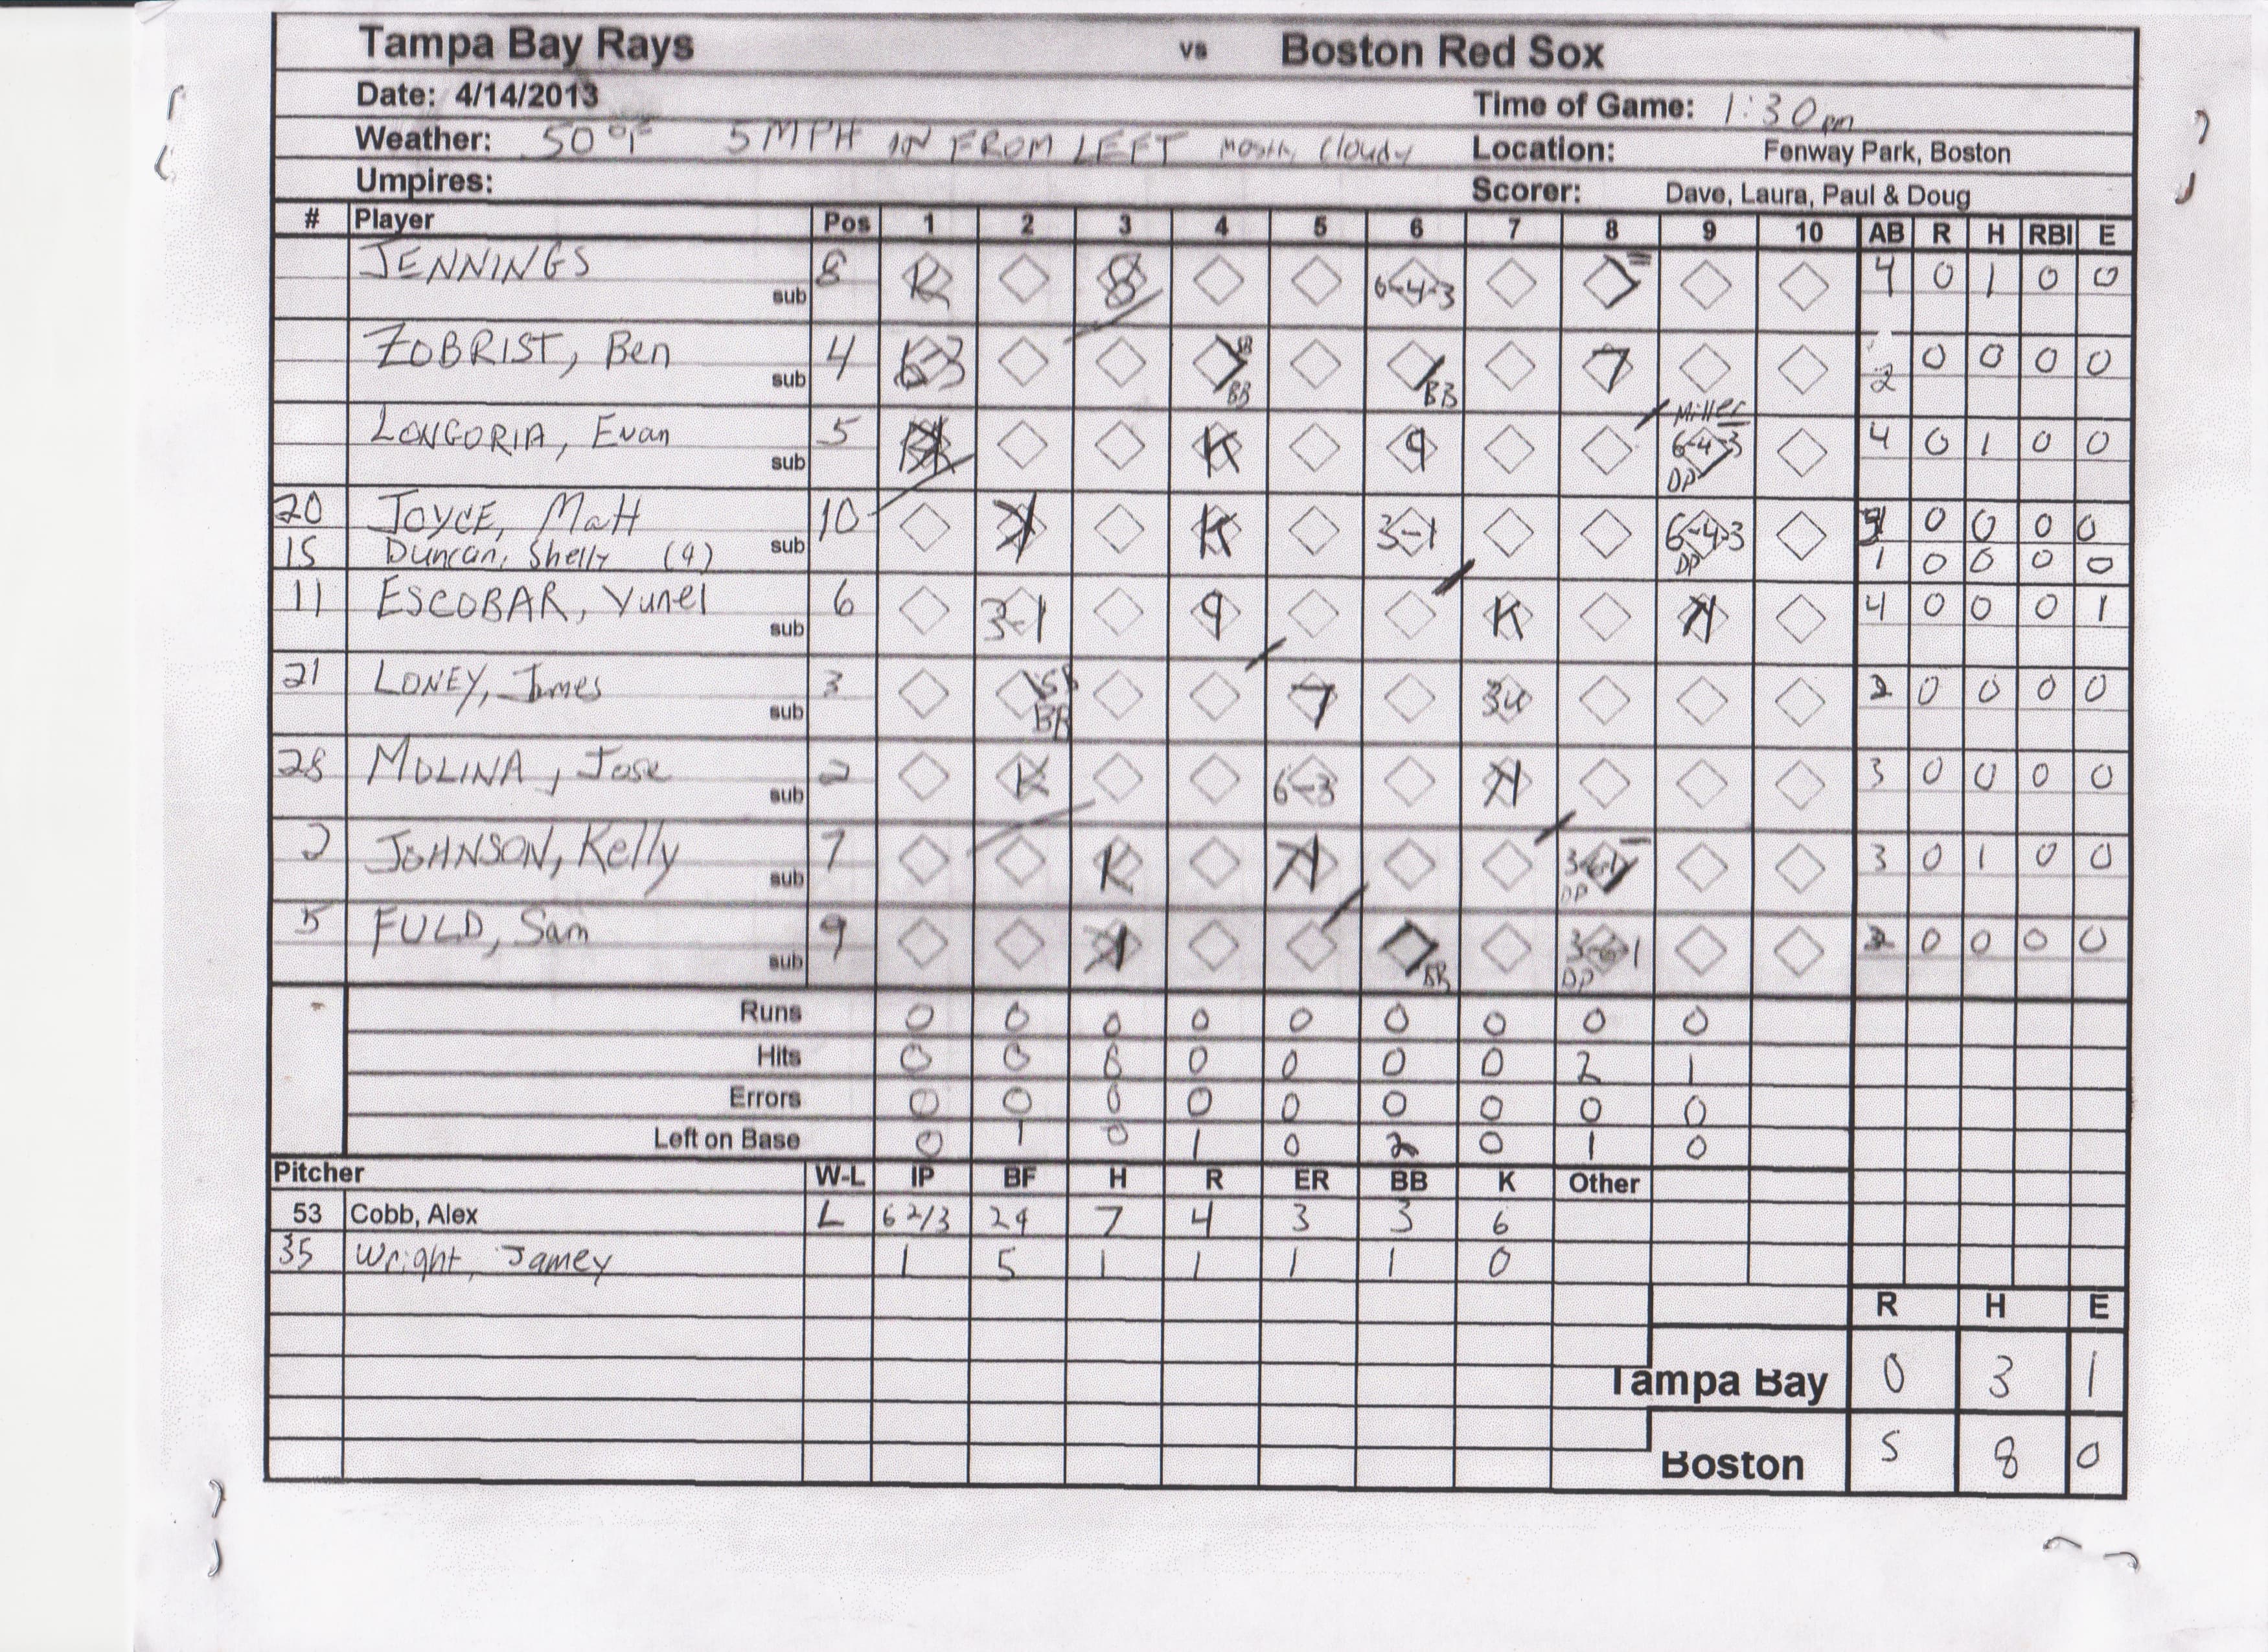 Tampa Bay Rays vs Boston Red Sox
Date: 4/14/2013 Time of Game: 1:30pm
Weather: 50°F 5MPH IN FROM LEFT mostly cloudy Location: Fenway Park, Boston
Umpires: Scorer: Dave, Laura, Paul & Doug
# Player Pos 1 2 3 4 5 6 7 8 9 10 AB R H RBI E
JENNINGS 8 K 8 6-4-3 4 0 1 0 0
sub
ZOBRIST, Ben 4 6-3 SB BB BB 7 2 0 0 0 0
sub
LONGORIA, Evan 5 K 9 Miller 6-4-3 DP 4 0 1 0 0
sub
20 JOYCE, Matt 10 K 3-1 6-4-3 DP 0 0 0 0
15 Duncan, Shelly (9) sub 1 0 0 0 0
11 ESCOBAR, Yunel 6 3-1 9 K K 4 0 0 0 1
sub
21 LONEY, James 3 SB BB 7 3U 2 0 0 0 0
sub
28 MOLINA, Jose 2 K 6-3 K 3 0 0 0 0
sub
2 JOHNSON, Kelly 7 K K 3-6-1 DP 3 0 1 0 0
sub
5 FULD, Sam 9 BB 3-6-1 DP 0 0 0 0
sub
Runs 0 0 0 0 0 0 0 0 0
Hits 0 0 0 0 0 0 0 2 1
Errors 0 0 0 0 0 0 0 0 0
Left on Base 0 1 0 1 0 2 0 1 0
Pitcher W-L IP BF H R ER BB K Other
53 Cobb, Alex L 6 2/3 29 7 4 3 3 6
35 Wright, Jamey 1 5 1 1 1 1 0
R H E
Tampa Bay 0 3 1
Boston 5 8 0